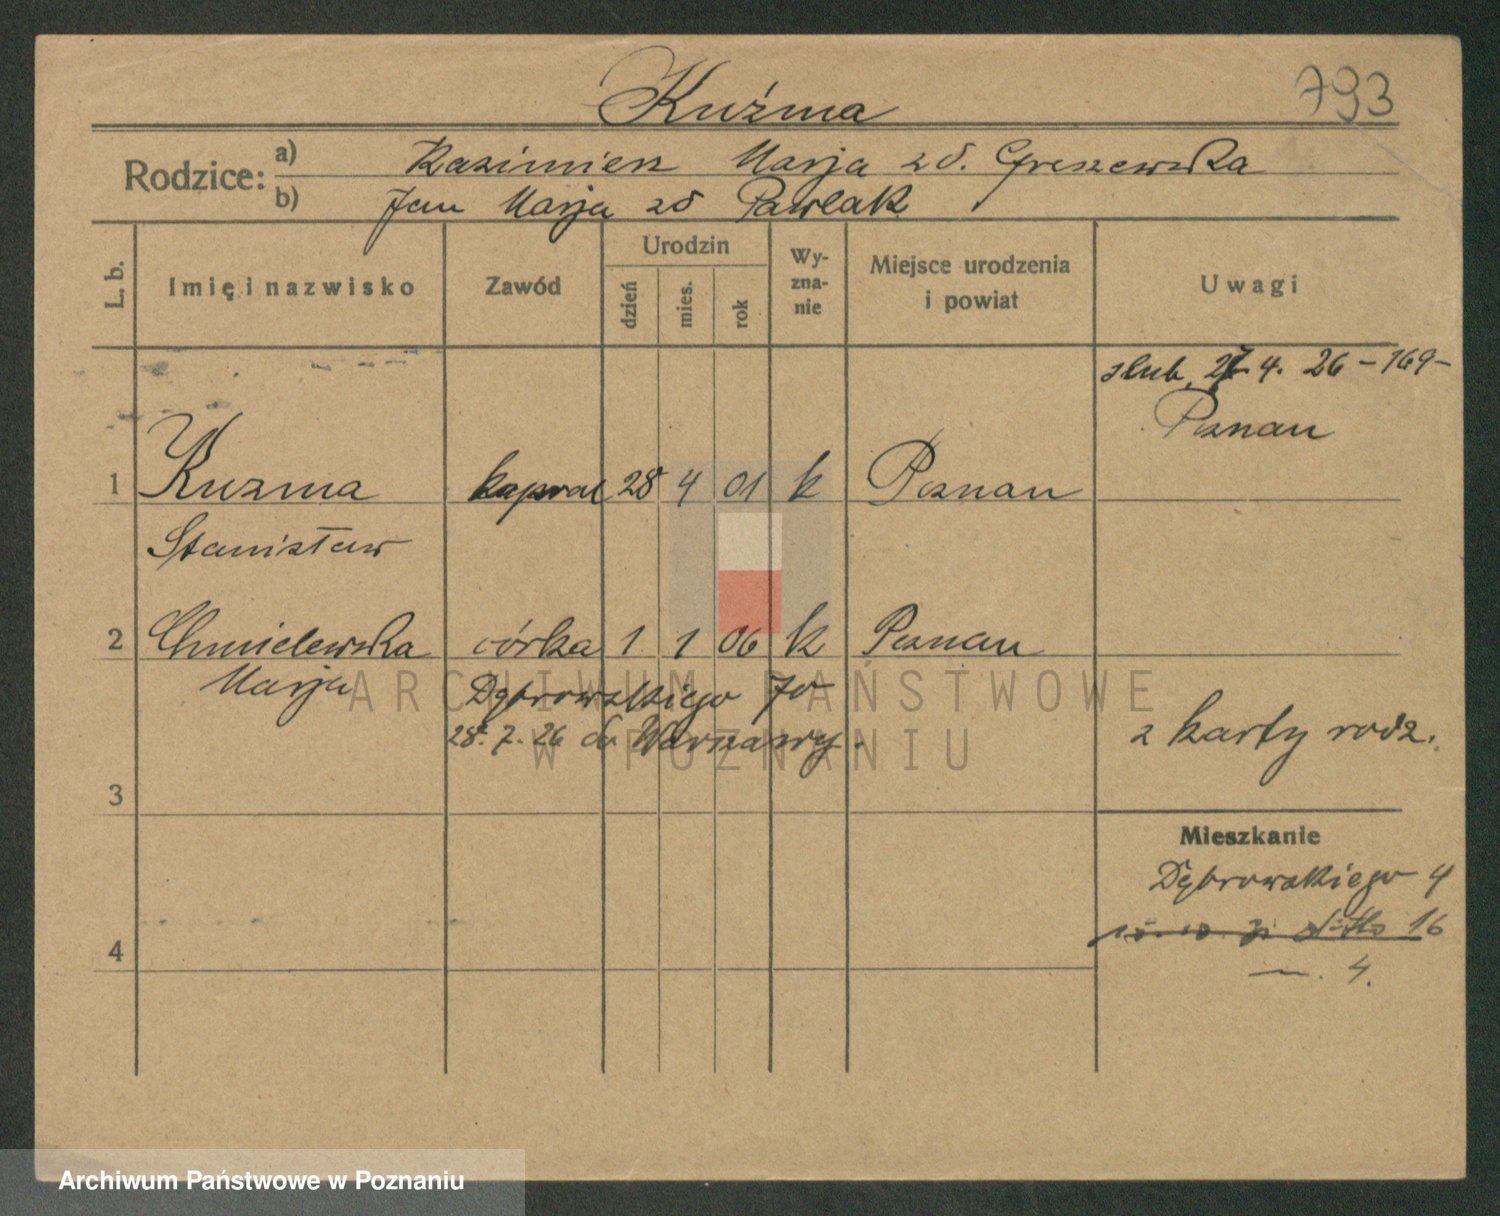 Kuźma
793
Rodzice:
a) Kazimierz Marja zd. Greszewska
b) Jan Marja zd Pawlak
L. b.
Imię i nazwisko
Zawód
Urodzin
dzień
mies.
rok
Wy-
zna-
nie
Miejsce urodzenia
i powiat
Uwagi
ślub 27. 4. 26 – 169 –
Poznan
1 Kuzma kapral 28 4 01 k Poznan
Stanisław
2 Chmielewska córka 1 1 06 k Poznan
Marja Dąbrowskiego 70
28. 7. 26 do Warszawy.
z karty rodz.
3
Mieszkanie
Dąbrowskiego 4
16
4
4.
ARCHIWUM PAŃSTWOWE
W POZNANIU
Archiwum Państwowe w Poznaniu